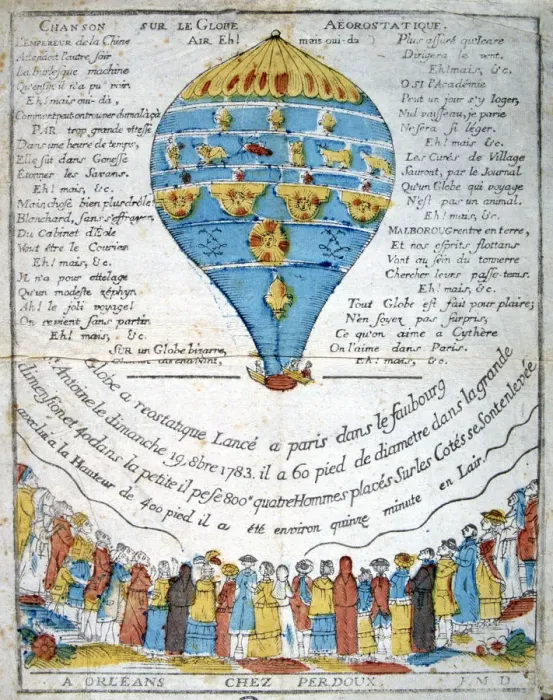 CHANSON SUR LE GLOBE AEOROSTATIQUE.
AIR Eh! mais oui-da)
L'EMPEREUR de la Chine
Attendoit l'autre soir
La burlesque machine
Qu'enfin il n'a pu voir.
Eh! mais oui-da,
Comment peut on trouver du mal à çà
PAR trop grande vitesse
Dans une heure de temps,
Elle fut dans Gonesse
Étonner les Savans.
Eh! mais, &c.
Mais chose bien plus drôle!
Blanchard, sans s'effrayer,
Du Cabinet d'Éole
Veut être le Courier.
Eh! mais, &c.
IL n'a pour attelage
Qu'un modeste zéphyr.
Ah! le joli voyage!
On revient sans partir.
Eh! mais, &c.
SUR un Globe bizarre,
Plus assuré qu'Icare
Dirigera le vent.
Eh! mais, &c.
O SI l'Académie
Peut un jour s'y loger,
Nul vaisseau, je parie
Ne sera si léger.
Eh! mais &c.
Les Curés de Village
Sauront, par le Journal
Qu'un Globe qui voyage
N'est pas un animal.
Eh! mais, &c.
MALBOROUG rentre en terre,
Et nos esprits flottans
Vont au sein du tonnerre
Chercher leurs passe-tems.
Eh! mais, &c.
Tout Globe est fait pour plaire;
N'en soyez pas surpris,
Ce qu'on aime à Cythère
On l'aime dans Paris.
Eh! mais, &c.
Globe a reostatique Lancé a paris dans le faubourg
St Antoine le dimanche 19, 8bre 1783. il a 60 pied de diametre dans la grande
dimension et 40 dans la petite il pese 800# quatre Hommes placés Sur les Cotés se Sont enlevée
avec lui a la Hauteur de 400 pied il a été environ quinze minute en Lair.
A ORLÉANS CHEZ PERDOUX. F. M. D.